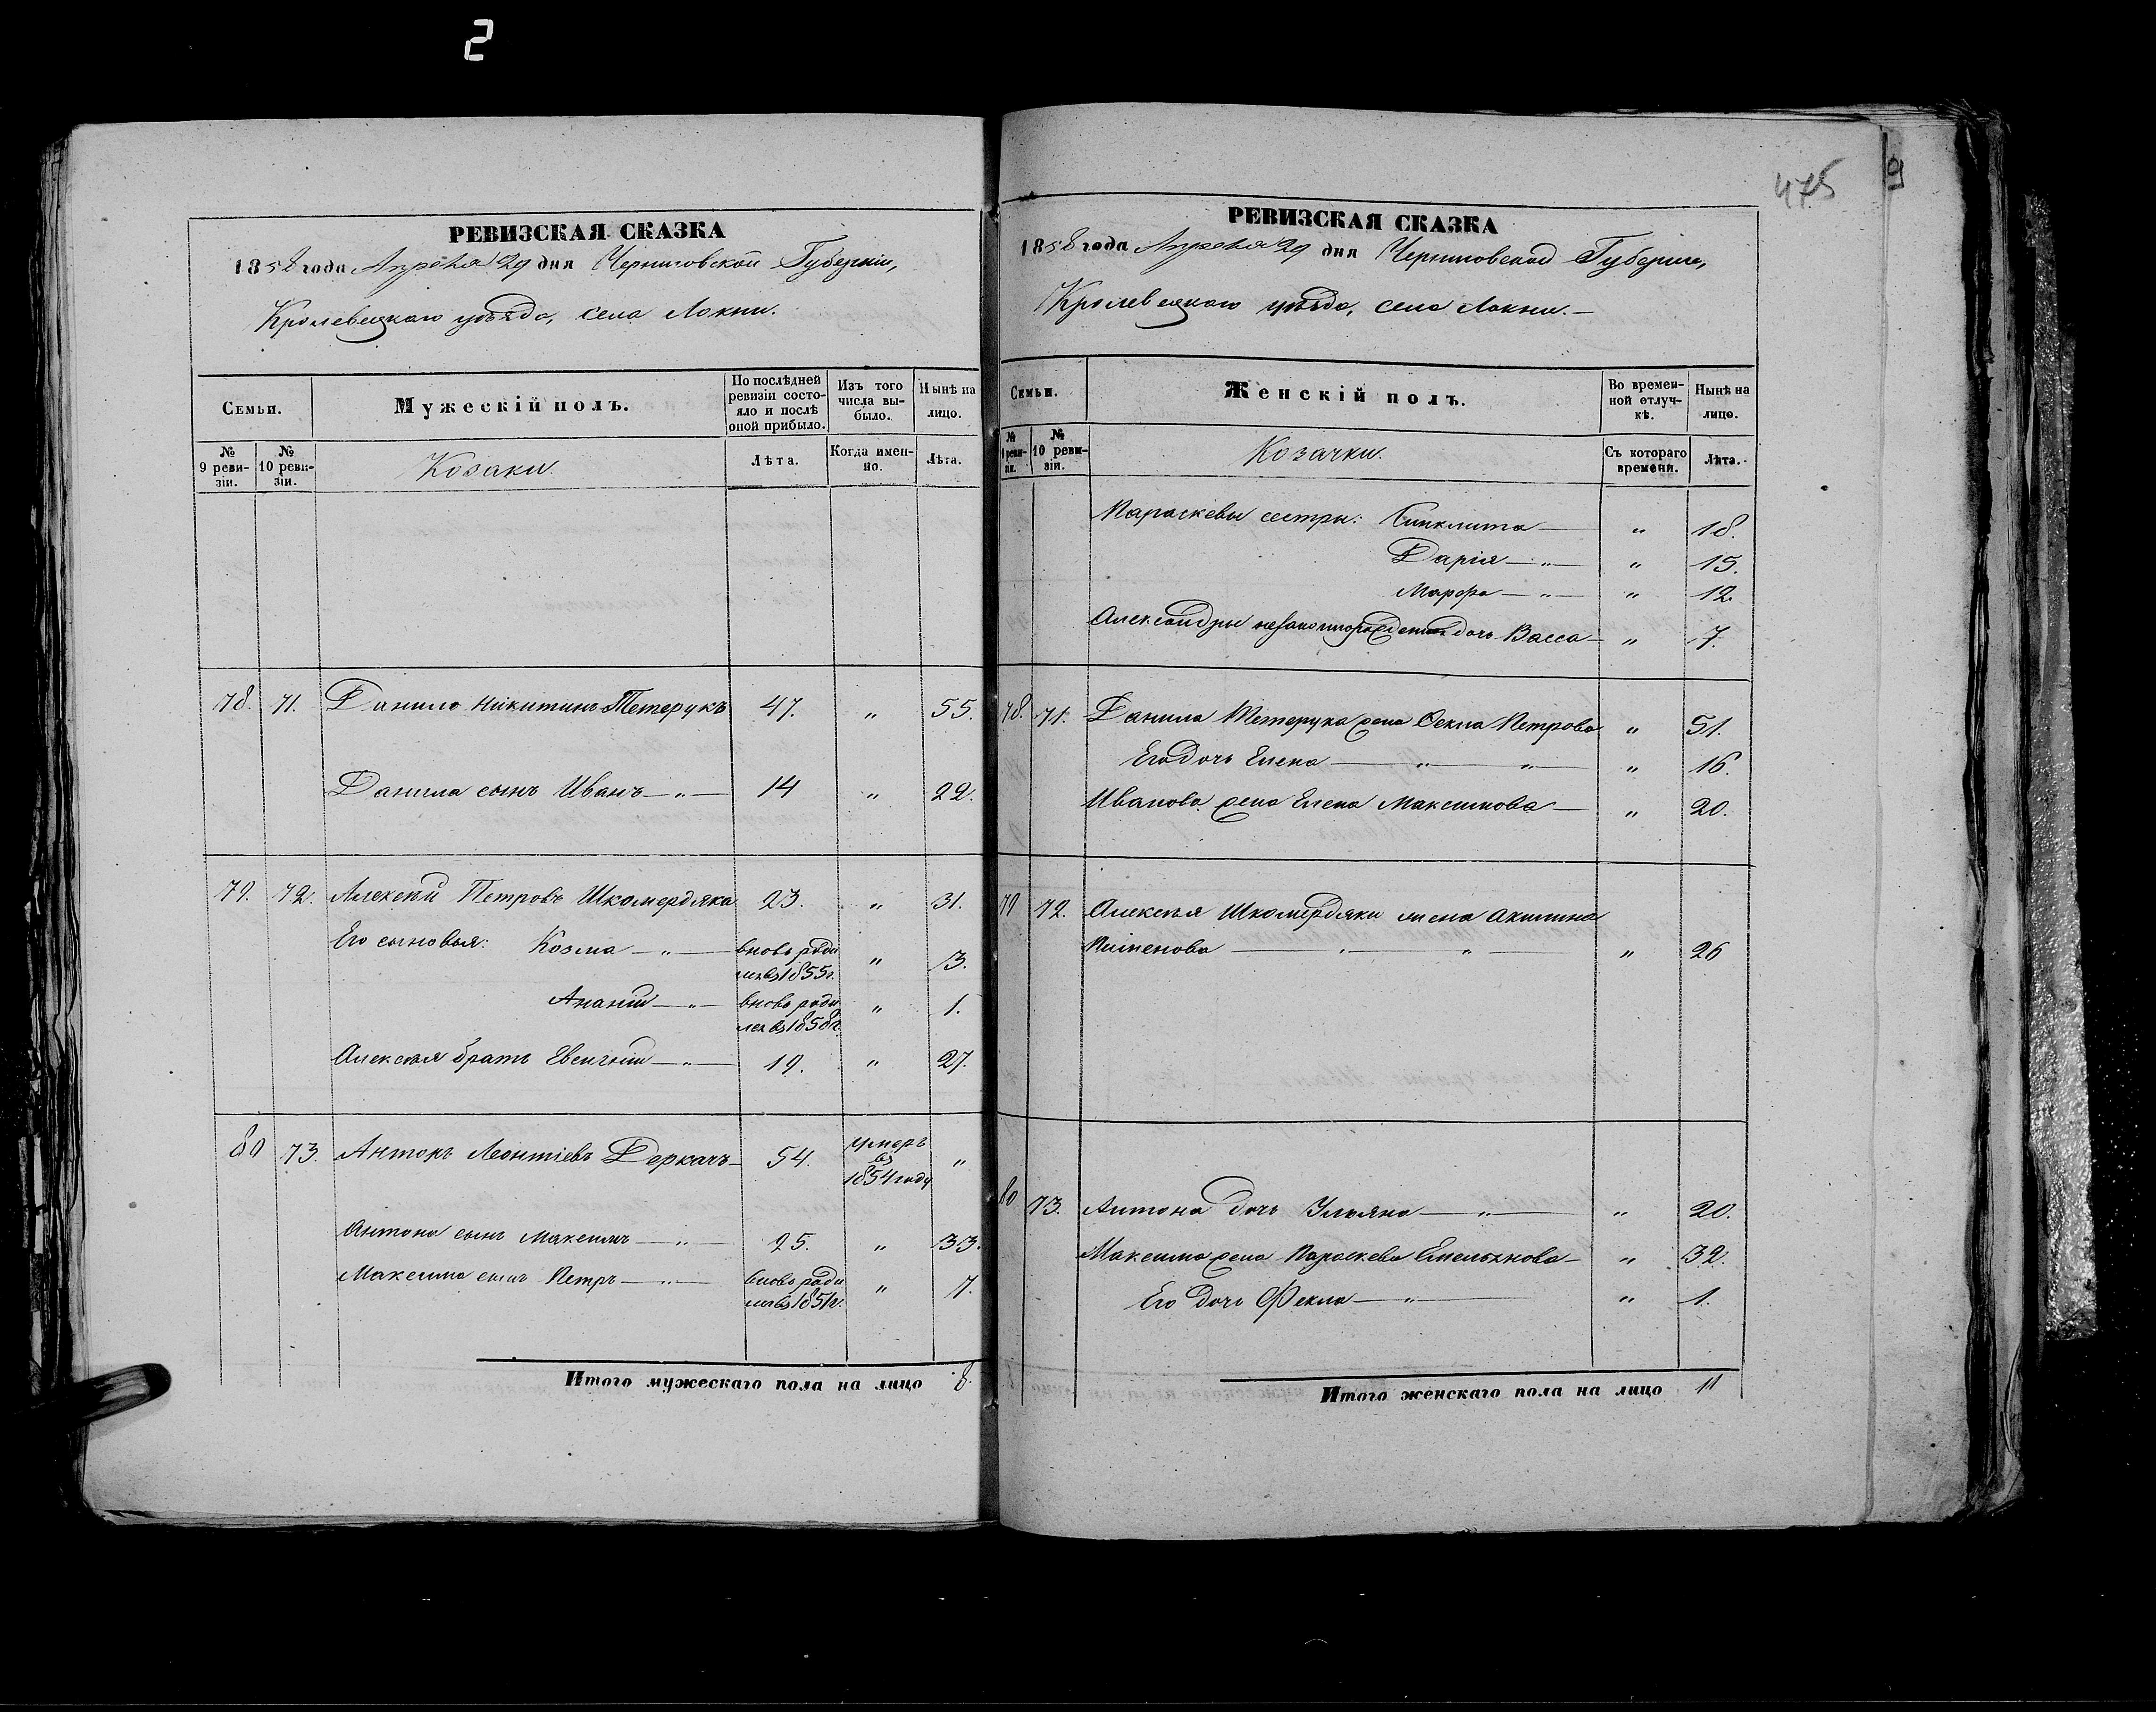 2
РЕВИЗСКАЯ СКАЗКА
1858 года Апрѣля 29 дня Черниговской Губерніи,
Кролевецкаго уѣзда, села Локни.
Семьи.
Мужескій полъ.
По послѣдней ревизіи состояло и послѣ оной прибыло.
Изъ того числа выбыло.
Нынѣ на лицо.
№ 9 ревизіи.
№ 10 ревизіи.
Козаки.
Лѣта.
Когда именно.
Лѣта.
78. 71. Данило Никитинъ Тетерукъ 47. " 55.
Данила сынъ Иванъ — " — 14 " 22.
79. 72. Алексѣй Петровъ Шкомердяка 23. " 31.
Его сыновья: Козма — " — вновь роди
лся въ 1855 г. " 3.
Ананій — " — вновь роди
лся въ 1858 г. " 1.
Алексѣя братъ Евсигній — " — 19. " 27.
80 73. Антонъ Леонтіевъ Деркачъ — 54. умеръ въ 1854 году "
Антона сынъ Максимъ — " — 25. " 33.
Максима сынъ Петръ — " — вновь роди
лся въ 1851 г. " 7.
Итого мужескаго пола на лицо 8.
475
9
РЕВИЗСКАЯ СКАЗКА
1858 года Апрѣля 29 дня Черниговской Губерніи,
Кролевецкаго уѣзда, села Локни. —
Семьи.
Женскій полъ.
Во временной отлучкѣ.
Нынѣ на лицо.
№ 9 ревизіи.
№ 10 ревизіи.
Козачки.
Съ котораго времени.
Лѣта.
Параскевы сестры: Синклита — " 18.
Дарія — " — " 15.
Марфа — " — " 12.
Александры незаконнорожденная дочь Васса — " 7.
78. 71. Данила Тетерука жена Фекла Петрова " 51.
Его дочь Елена — " — " — " 16.
Иванова жена Елена Максимова — " 20.
79 72. Алексѣя Шкомердяки жена Акилина
Пименова — " — " — " 26
80 73. Антона дочь Ульяна — " — " 20.
Максима жена Параскева Емельянова — " 32.
Его дочь Фекла — " — " 1.
Итого женскаго пола на лицо 11